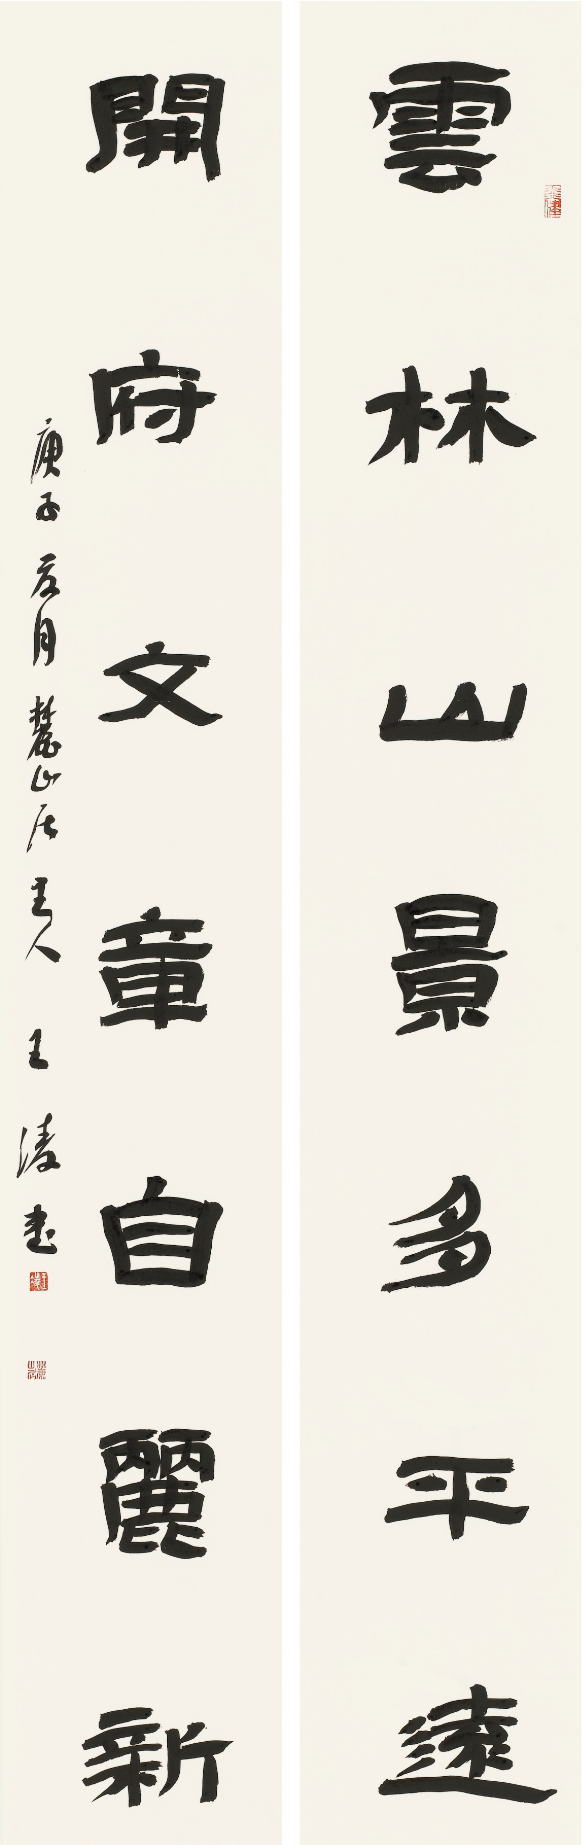 雲林山景多平遠
開府文章自麗新
庚子夏月麓山居主人王凌書